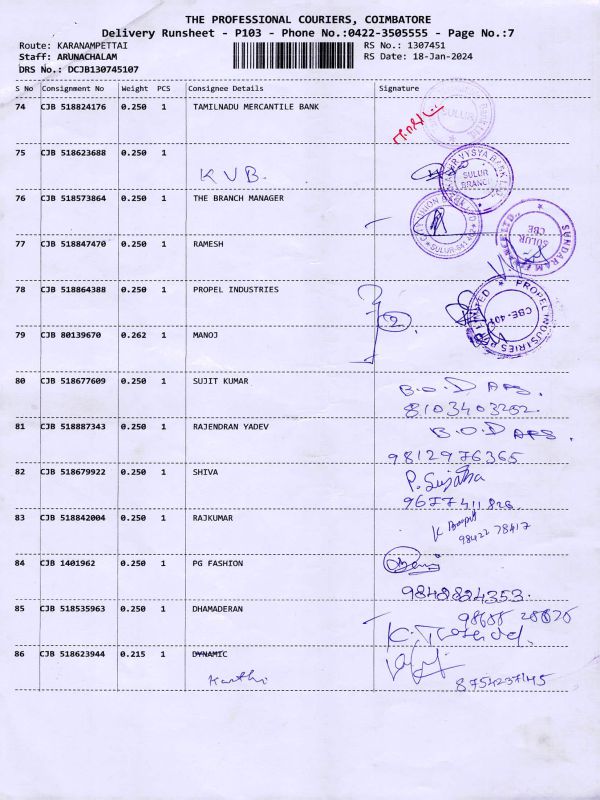 THE PROFESSIONAL COURIERS, COIMBATORE
Delivery Runsheet - P103 - Phone No.:0422-3505555 - Page No.:7
Route: KARANAMPETTAI RS No.: 1307451
Staff: ARUNACHALAM RS Date: 18-Jan-2024
DRS No.: DCJB130745107
S No Consignment No Weight PCS Consignee Details Signature
74 CJB 518824176 0.250 1 TAMILNADU MERCANTILE BANK
SULUR
75 CJB 518623688 0.250 1
KVB.
VYSYA BANK
SULUR
BRANCH
76 CJB 518573864 0.250 1 THE BRANCH MANAGER
UNION BANK
SULUR
SUNDARAM
SULUR,
CBE
77 CJB 518847470 0.250 1 RAMESH
78 CJB 518864388 0.250 1 PROPEL INDUSTRIES
2
PROPEL INDUSTRIES
LIMITED
79 CJB 80139670 0.262 1 MANOJ
80 CJB 518677609 0.250 1 SUJIT KUMAR
B.O.D
8103403252.
81 CJB 518887343 0.250 1 RAJENDRAN YADEV
B.O.D
9812976365
82 CJB 518679922 0.250 1 SHIVA
P. Sujatha
9677411826
83 CJB 518842004 0.250 1 RAJKUMAR
98422 78417
84 CJB 1401962 0.250 1 PG FASHION
9848824353.
85 CJB 518535963 0.250 1 DHAMADERAN
86 CJB 518623944 0.215 1 DYNAMIC
Karthi
8754237145